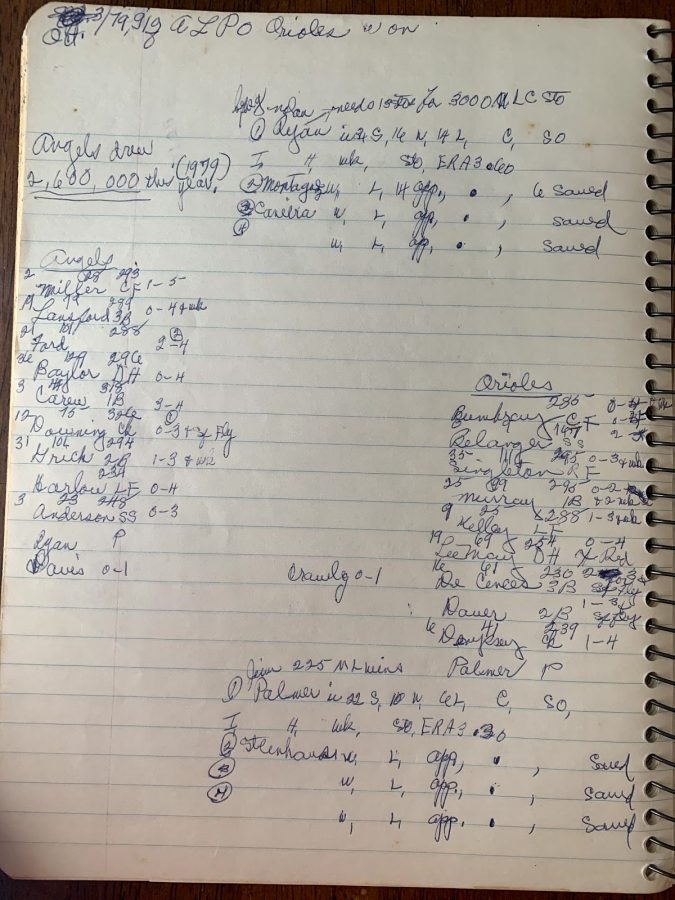 Oct. 3/79, ALPO Orioles won
needs for 3000 ML C SO
① Ryan is S, 16 W, 14 L, C, SO
I H wk, SO, ERA 3.60
Angels drew
2,600,000 this (1979) year.
② Montague w, L, 14 app, . , 6 Saved
③ w, L, app, . , saved
④ w, L, app, . , saved
Angels
2 28 293
Miller CF 1-5
79 289
Lansford 3B 0-4 & wk
101 288
Ford 2-4 ②
Baylor DH 0-4
3
Carew 1B 3-4
12 75 326 ①
Downing C 0-3 & sf Fly
31 101 294
Grich 2B 1-3 & wk
234
Harlow LF 0-4
3 23 248
Anderson SS 0-3
Ryan P
Davis 0-1
Orioles
235
Bumbry CF
Belanger SS
35 295 0-3 & wk
Singleton RF
25 99 295 0-2
Murray 1B & 2 wk
9 25 288 1-3 & wk
Kelley LF
19 69 254 0-4
Lee May DH
16 61 230
De Cinces 3B sf Fly
Crowley 0-1
1-3 &
Dauer 2B sf fly
6 41 239
Dempsey C 1-4
Jim 225 ML wins Palmer P
① Palmer is 22 S, 10 W, 6 L, C, SO,
I H wk, SO, ERA 3.30
② Stanhouse w, L, app, . , Saved
③ w, L, app, . , Saved
④ w, L, app. . , Saved